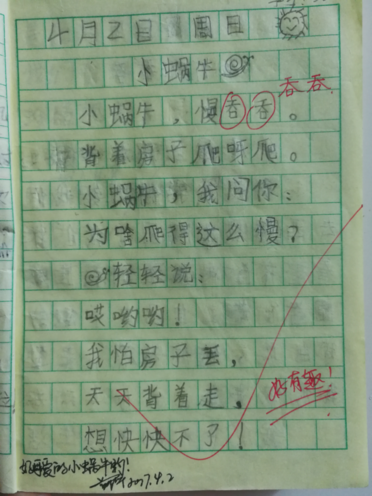 4月2日 周日
小蜗牛
小蜗牛，慢吞吞。
吞吞
背着房子爬呀爬。
小蜗牛，我问你：
为啥爬得这么慢？
轻轻说：
哎哟哟！
我怕房子丢，
天天背着走，
好有趣！
想快快不了！
好可爱的小蜗牛哟！
2017.4.2